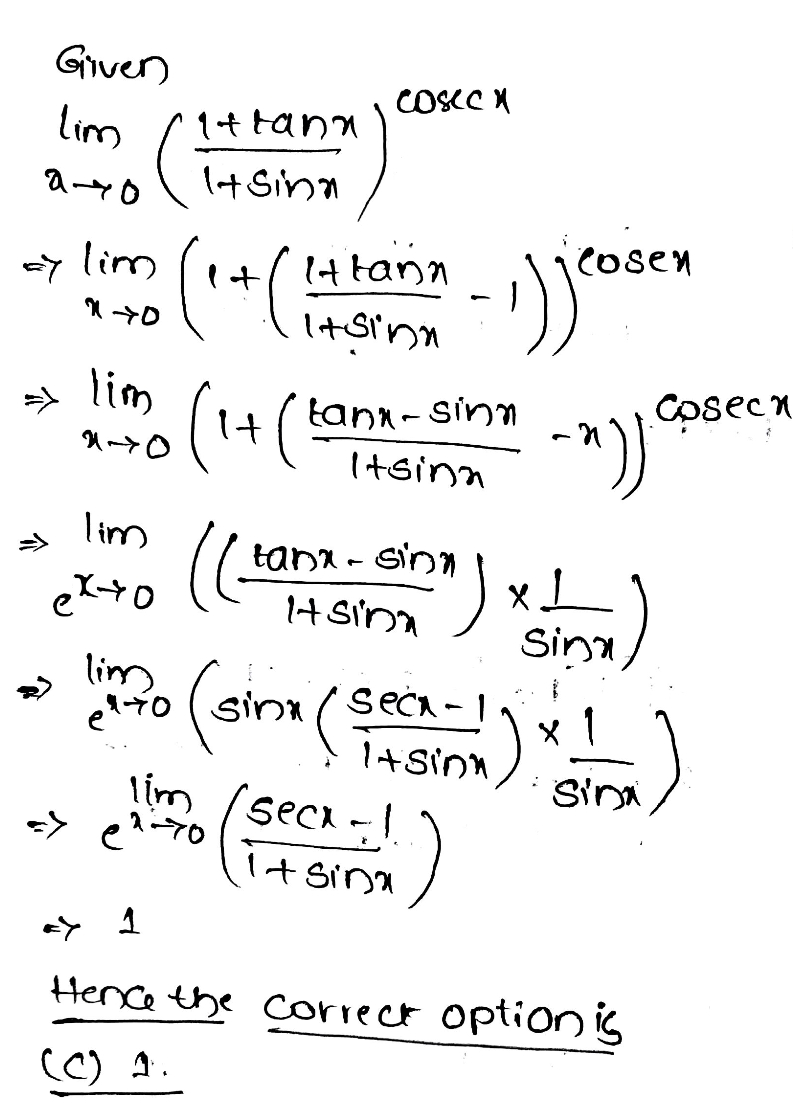 Given
lim x→0 ((1+tanx)/(1+sinx))^cosecx
⇒ lim x→0 (1+((1+tanx)/(1+sinx) - 1))^cosex
⇒ lim x→0 (1+((tanx-sinx)/(1+sinx) -x))^cosecx
⇒ lim e^x→0 (((tanx-sinx)/(1+sinx)) × 1/sinx)
⇒ lim e^x→0 (sinx((secx-1)/(1+sinx)) × 1/sinx)
⇒ lim e^x→0 ((secx-1)/(1+sinx))
⇒ 1
Hence the correct option is
(C) 1.